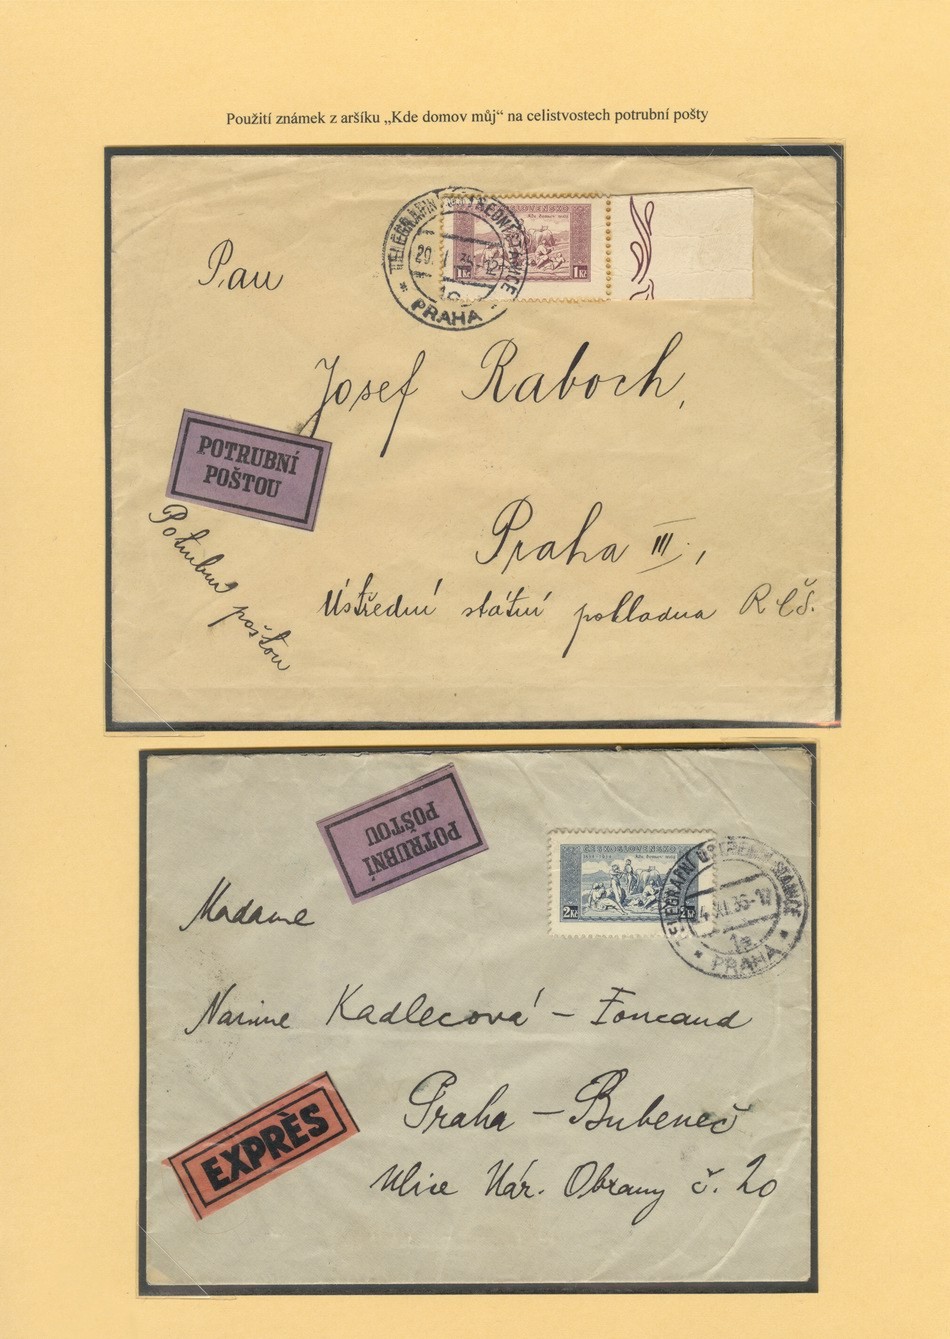 Použití známek z aršíku „Kde domov můj“ na celistvostech potrubní pošty
TELEGRAFNÍ ÚSTŘEDNÍ STANICE
PRAHA
1 Kč 1 Kč
Pan
Josef Raboch,
POTRUBNÍ
POŠTOU
Potrubní poštou
Praha III.,
Ústřední státní pokladna R Č S.
POTRUBNÍ
POŠTOU
ČESKOSLOVENSKO
2 Kč 2 Kč
TELEGRAFNÍ ÚSTŘEDNÍ STANICE
4.XI.36-17
PRAHA
Madame
Kadlecová – Foncaud
EXPRÈS
Praha – Bubeneč
Ulice Nár. Obrany č. 20